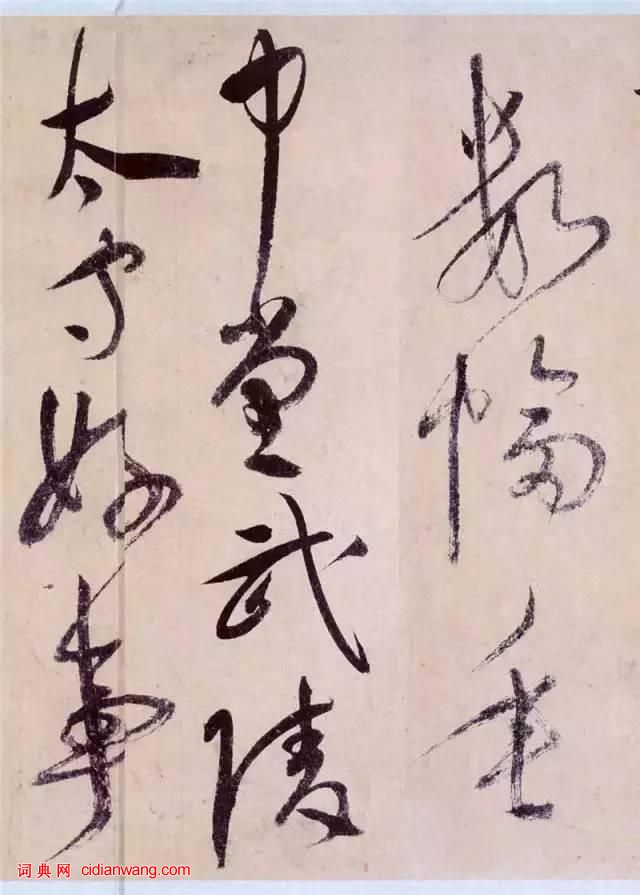 數幅垂
中堂武陵
太守好事
词典网 cidianwang.com